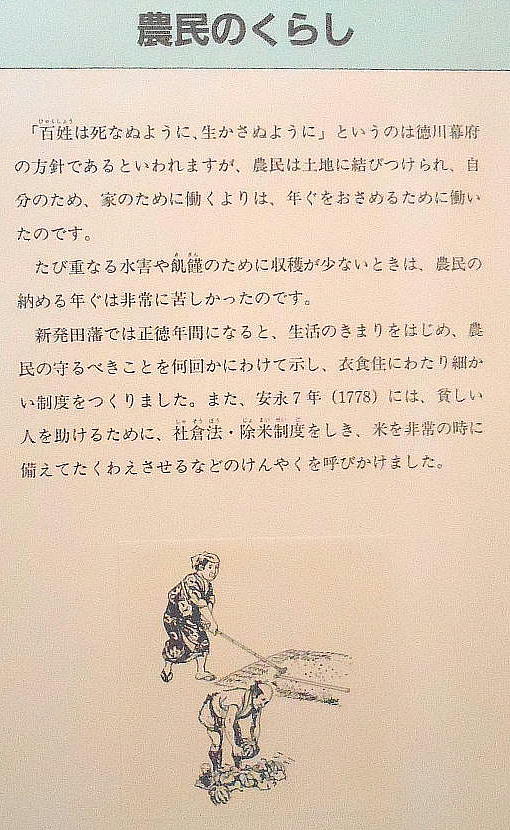 農民のくらし
「百姓は死なぬように、生かさぬように」というのは徳川幕府
の方針であるといわれますが、農民は土地に結びつけられ、自
分のため、家のために働くよりは、年ぐをおさめるために働い
たのです。
たび重なる水害や飢饉のために収穫が少ないときは、農民の
納める年ぐは非常に苦しかったのです。
新発田藩では正徳年間になると、生活のきまりをはじめ、農
民の守るべきことを何回かにわけて示し、衣食住にわたり細か
い制度をつくりました。また、安永7年(1778)には、貧しい
人を助けるために、社倉法・除米制度をしき、米を非常の時に
備えてたくわえさせるなどのけんやくを呼びかけました。